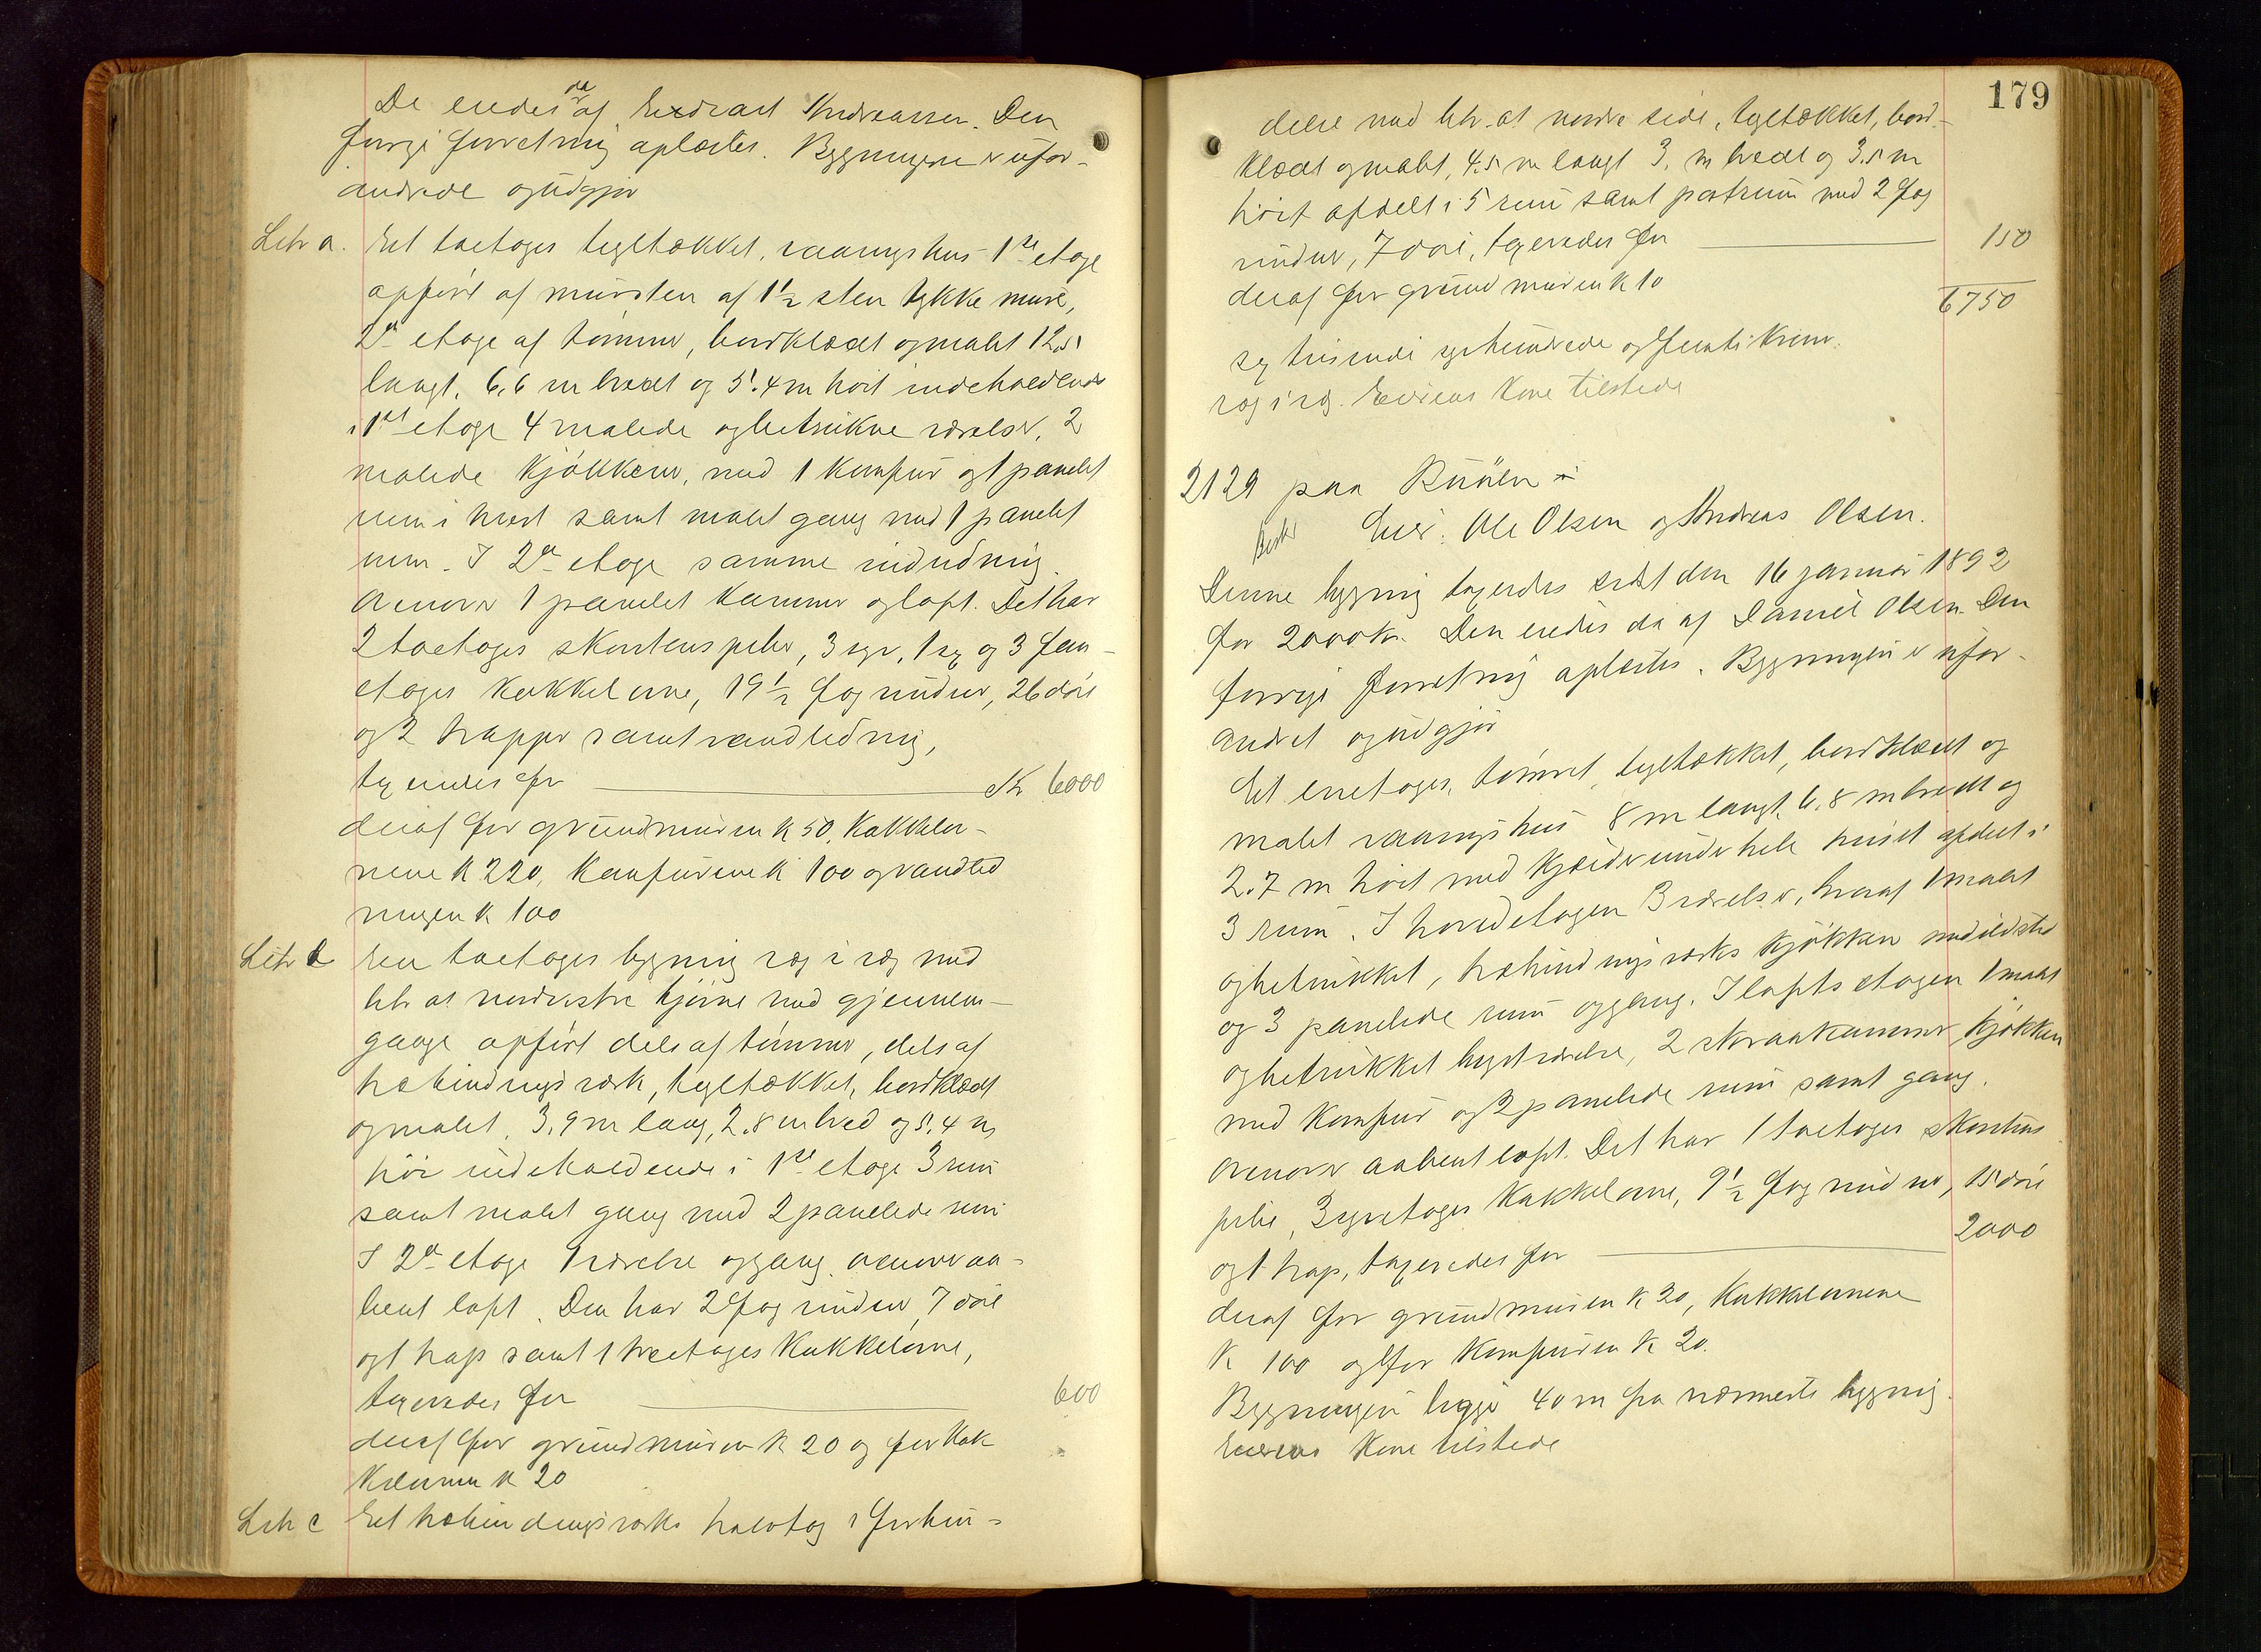 De eiedes da af Endreas Andreassen. Den
forrige forretning oplæstes. Bygningerne er ufor-
andrede og udgjør
Litr a. Et toetages tegltækket, vaaningshus 1ste etage
opført af mursten af 1 1/2 sten tykke mure,
2den etage af tømmer, bordklædt og malet 12,5
langt, 6,6 m bredt og 5,4 m høit indeholdende
i 1ste etage 4 malede og betrukne værelser, 2
malede kjøkkener, med 1 komfur og 1 panelet
rum i hvert samt malet gang med 1 panelet
rum. I 2den etage samme indredning.
Ovenover 1 panelet kammer og loft. Det har
2 toetages skorstenspiber, 3 syv, 1 sex og 3 fem-
etages kakkelovne, 19 1/2 fag vinduer, 26 døre
og 2 trapper samt vandledning,
taxeredes for Kr 6000
deraf for grundmuren K 50, Kakkelov-
nene K 220, Komfurene K 100 og vandled
ningen K 100
Litr b En toetages bygning væg i væg med
litr a's nordvestre hjørne med gjennem-
gang opført dels af tømmer, dels af
træbindingsværk, tegltækket, bordklædt
og malet, 3,9 m lang, 2.8 m bred og 5,4 m
høi indeholdende i 1ste etage 3 rum
samt malet gang med 2 panelede rum
I 2den etage 1 værelse og gang, ovenover aa-
bent loft. Den har 2 fag vinduer, 7 døre
og 1 trap samt 1 treetages Kakkelovne,
taxeredes for 600
deraf for grundmuren K 20 og for Kak
kelovnen K 20
Litr c Et træbindingsværks halvtag i forbin-
179
delse med litr. a's nordre side, tegltækket, bord-
klædt og malet, 4,5 m langt 3, m bredt og 3,5 m
høit afdelt i 5 rum samt portrum med 2 fag
vinduer, 7 døre, taxeredes for 150
deraf for grundmuren K 10
6750
sex tusinde syvhundrede og femti Kroner.
væg i væg. Eierens Kone tilstede
2129 paa Buøen
Besk Eier: Ole Olsen og Andreas Olsen.
Denne bygning taxeredes sidst den 16 januar 1892
for 2000 Kr. Den eiedes da af Daniel Olsen. Den
forrige forretning oplæstes. Bygningen er ufor-
andret og udgjør
Et enetages, tømret, tegltækket, bordklædt og
malet vaaningshus 8 m langt, 6,8 m bredt og
2.7 m høit med kjælder under hele huset afdelt i
3 rum. I hovedetagen 3 værelser, hvoraf 1 malet
og betrukket, træbindingsværks kjøkken med ildsted
og 3 panelede rum og gang. I loftsetagen 1 malet
og betrukket kvistværelse, 2 skraakammer, kjøkken
med Komfur og 2 panelede rum samt gang.
Ovenover aabent loft. Det har 1 toetages skorstens
pibe, 3 syvetages Kakkelovne, 9 1/2 fag vinduer, 15 døre
og 1 trap, taxeredes for 2000
deraf for grundmuren K 20, Kakkelovnene
K 100 og for Komfuren K 20.
Bygningen ligger 40 m fra nærmeste bygning.
Eierens Kone tilstede